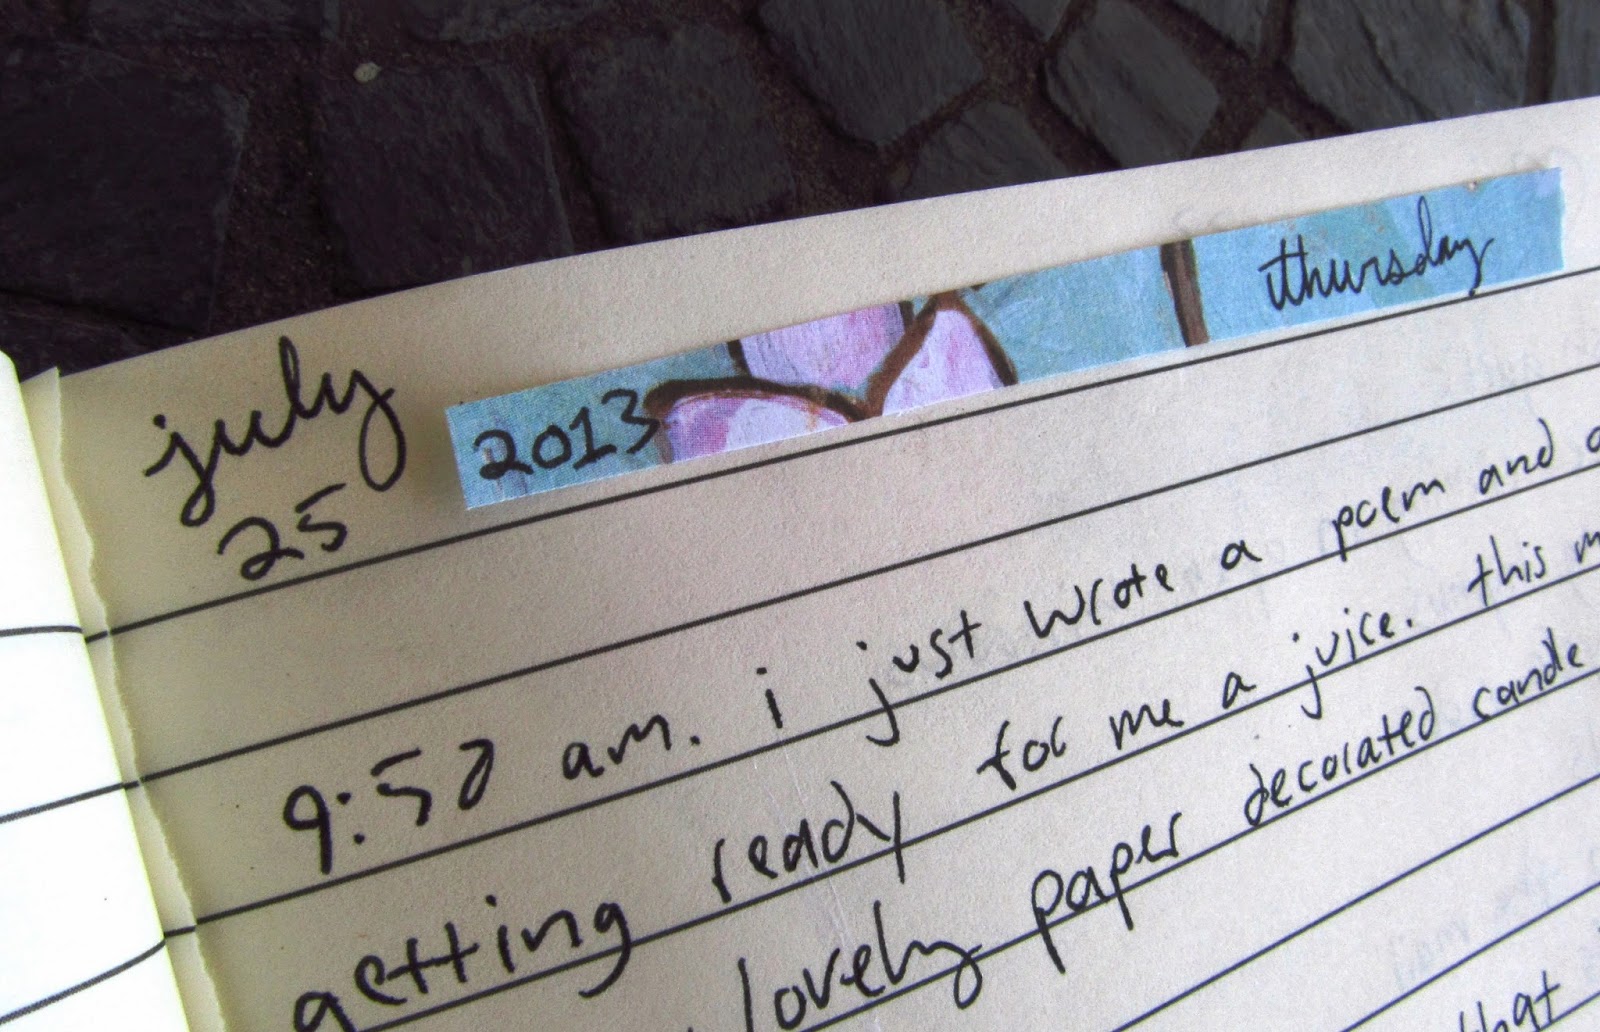 july 2013 thursday
25
am. i just wrote a poem and
getting ready for me a juice. this
lovely paper decorated candle
that